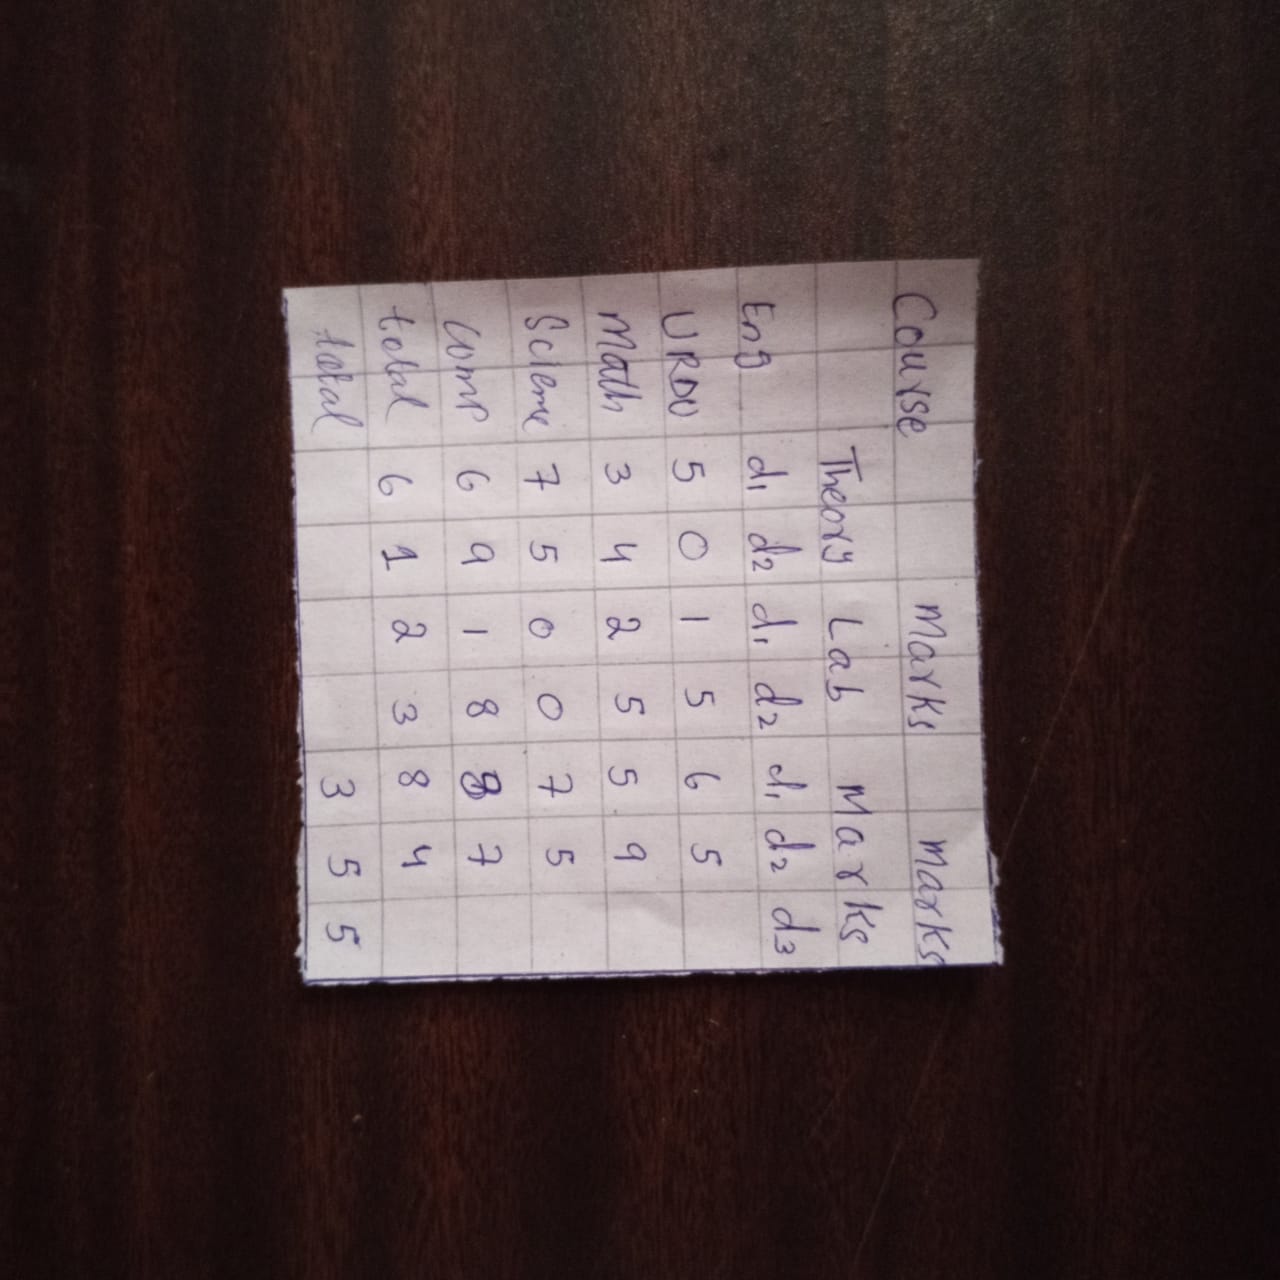 Course Marks Marks
Theory Lab Marks
Eng d1 d2 d1 d2 d1 d2 d3
URDU 5 0 1 5 6 5
Math 3 4 2 5 5 9
Science 7 5 0 0 7 5
Comp 6 9 1 8 8 7
total 6 1 2 3 8 4
total 3 5 5